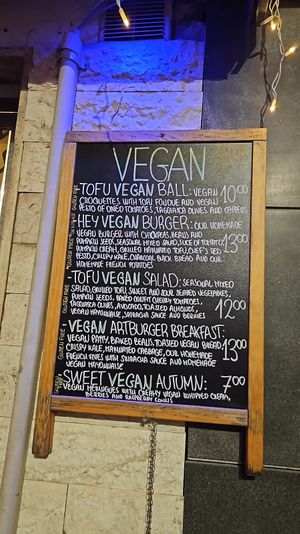 VEGAN
-TOFU VEGAN BALL: VEGAN 10.00
CROQUETTES WITH TOFU FONDUE AND VEGAN
PESTO OF DRIED TOMATOES, TAGGIASCA OLIVES AND CAPERS
-HEY VEGAN BURGER: OUR HOMEMADE
VEGAN BURGER WITH CHICKPEAS, BEANS AND 13.00
PUMPKIN SEEDS, SEASONAL MIXED SALAD, SLICE OF TOMATO
PUMPKIN CREAM, GRILLED MARINATED TOFU, CHEF'S RED
PESTO, CRISPY KALE, CHARCOAL BLACK BREAD AND OUR
HOMEMADE FRENCH POTATOES
-TOFU VEGAN SALAD: SEASONAL MIXED
SALAD, GRILLED TOFU, SWEET AND SOUR SEARED VEGETABLES,
PUMPKIN SEEDS, BAKED CONFIT CHERRY TOMATOES, 12.00
TAGGIASCA OLIVES, AVOCADO, TOASTED ALMONDS,
VEGAN MAYONNAISE, SRIRACHA SAUCE AND BERRIES
-VEGAN ARTBURGER BREAKFAST:
VEGAN PATTY, BAKED BEANS, TOASTED VEGAN BREAD, 13.00
CRISPY KALE, MARINATED CABBAGE, OUR HOMEMADE
FRENCH FRIES WITH SRIRACHA SAUCE AND HOMEMADE
VEGAN MAYONNAISE
-SWEET VEGAN AUTUMN: 7.00
VEGAN MERINGUES WITH CREAMY VEGAN WHIPPED CREAM,
BERRIES AND RASPBERRY COULIS
GLUTEN FREE
GLUTEN FREE
GLUTEN FREE